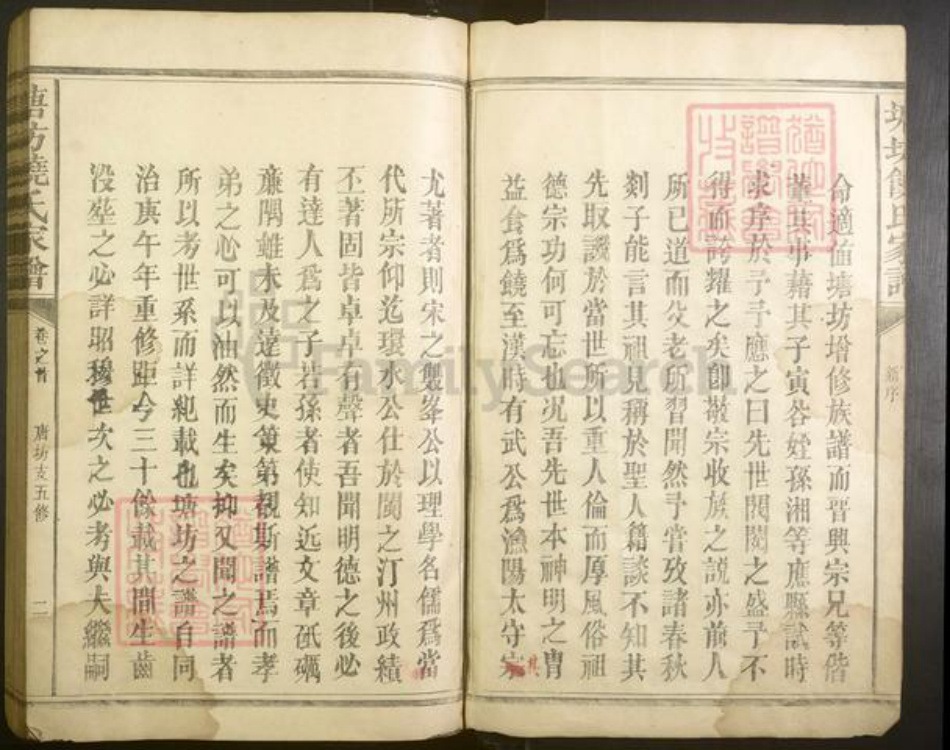 塘坊饒氏家譜
新序
命適值塘坊增修族譜而晉興宗兄等偕
董其事藉其子寅谷姪孫湘等應縣試時
求序於予予應之曰先世閥閱之盛予不
得而誇耀之矣卽敬宗收族之説亦前人
所已道而父老所習聞然予嘗攷諸春秋
剡子能言其祖見稱於聖人籍談不知其
先取譏於當世所以重人倫而厚風俗祖
德宗功何可忘也况吾先世本神明之胄
益食爲饒至漢時有武公爲漁陽太守宗
尤著者則宋之雙峯公以理學名儒爲當
代所宗仰迄環水公仕於閩之汀州政績
丕著固皆卓卓有聲者吾聞明德之後必
有達人爲之子若孫者使知近文章砥礪
亷隅雖未及達徵史䇿第覩斯譜焉而孝
弟之心可以油然而生矣抑又聞之譜者
所以考世系而詳紀載也塘坊之譜自同
治庚午年重修距今三十餘載其間生齒
没塟之必詳昭穆世次之必考與夫繼嗣
塘坊饒氏家譜
卷之首
唐坊支五修
二
FamilySearch